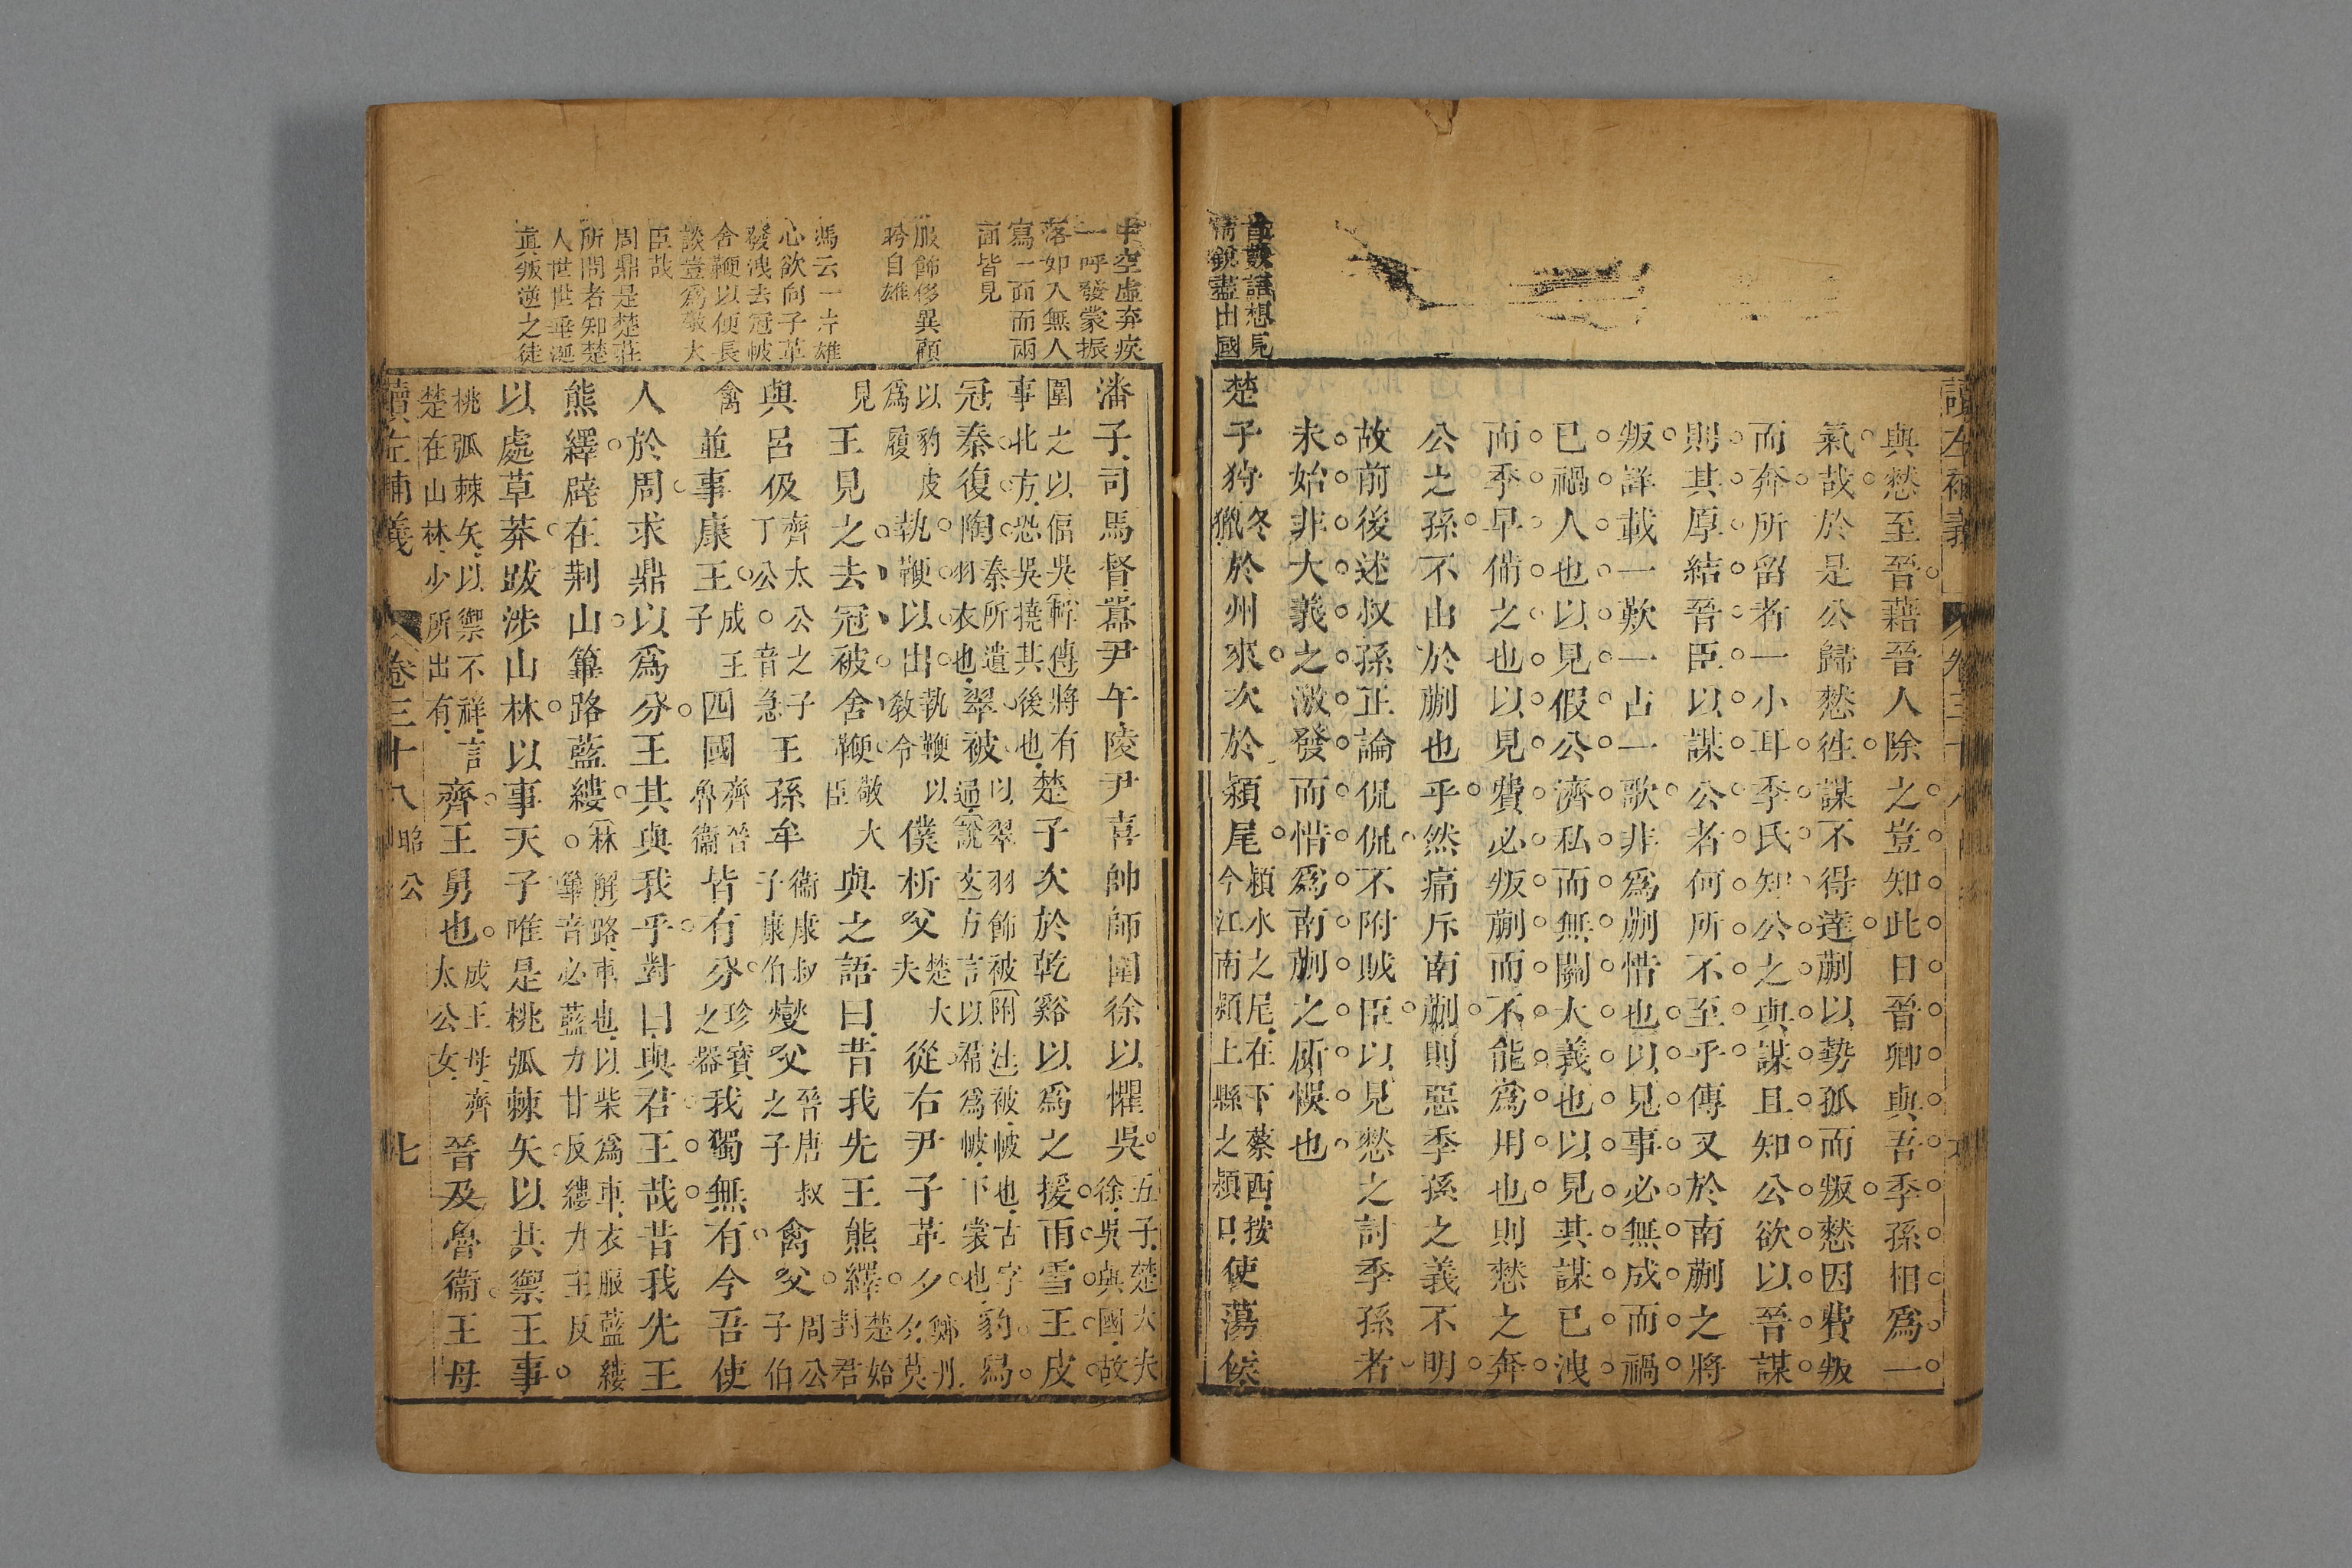 讀左補義 卷三十八
與憖至晉藉晉人除之豈知此日晉卿與吾季孫相爲一
氣哉於是公歸憖徃謀不得達蒯以勢孤而叛憖因費叛
而奔所留者一小耳季氏知公之與謀且知公欲以晉謀
則其厚結晉臣以謀公者何所不至乎傳又於南蒯之將
叛詳載一歎一占一歌非爲蒯惜也以見事必無成而禍
已禍人也以見假公濟私而無關大義也以見其謀已洩
而季早備之也以見費必叛蒯而不能爲用也則憖之奔
公之孫不由於蒯也乎然痛斥南蒯則惡季孫之義不明
故前後述叔孫正論侃侃不附賊臣以見憖之討季孫者
未始非大義之激發而惜爲南蒯之所悞也
首數語想見
情銳盡出國
楚子狩獵冬於州來次於潁尾潁水之尾在下蔡西按今江南潁上縣之潁口使蕩侯
中空虛弃疾
一呼發蒙振
落如入無人
寫一面而兩
面皆見
服飾侈異顧
盼自雄
馮云一片雄
心欲向子革
發洩去冠被
舍鞭以便長
談豈爲敬大
臣哉
周鼎是楚莊
所問者知楚
人世世垂涎
眞叛逆之徒
潘子司馬督嚻尹午陵尹喜帥師圍徐以懼吳五子楚大夫徐吳與國故
圍之以偪吳斬傳將有事北方恐吳撓其後也楚子次於乾谿以爲之援雨雪王皮
冠秦復陶秦所遺羽衣也翠被以翠羽飾被附注被帔也古字通說文方言以帬爲帔下裳也豹舄
以豹皮爲履執鞭以出執鞭以敎令僕析父楚大夫從右尹子革夕鄭丹夕莫
見王見之去冠被舍鞭敬大臣與之語曰昔我先王熊繹楚始封君
與呂伋齊太公之子丁公音急王孫牟衞康叔子康伯燮父晉唐叔之子禽父周公子伯
禽並事康王成王子四國齊晉魯衞皆有分珍寶之器我獨無有今吾使
人於周求鼎以爲分王其與我乎對曰與君王哉昔我先王
熊繹辟在荆山篳路藍縷林解路車也以柴爲車衣服藍縷篳音必藍力甘反縷力主反
以處草莽跋涉山林以事天子唯是桃弧棘矢以共禦王事
桃弧棘矢以禦不祥言楚在山林少所出有齊王舅也成王母齊太公女晉及魯衞王母
讀左補義 卷三十八 昭公 七